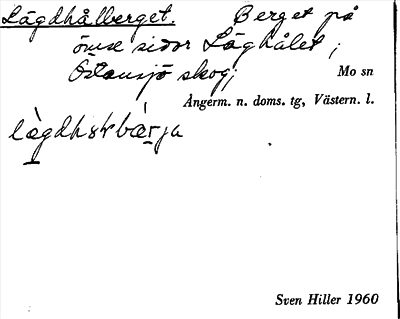 Lägdhålberget. Berget på
ömse sidor Läghålet;
Östansjö skog;
Mo sn
Ångerm. n. doms. tg, Västern. l.
Sven Hiller 1960